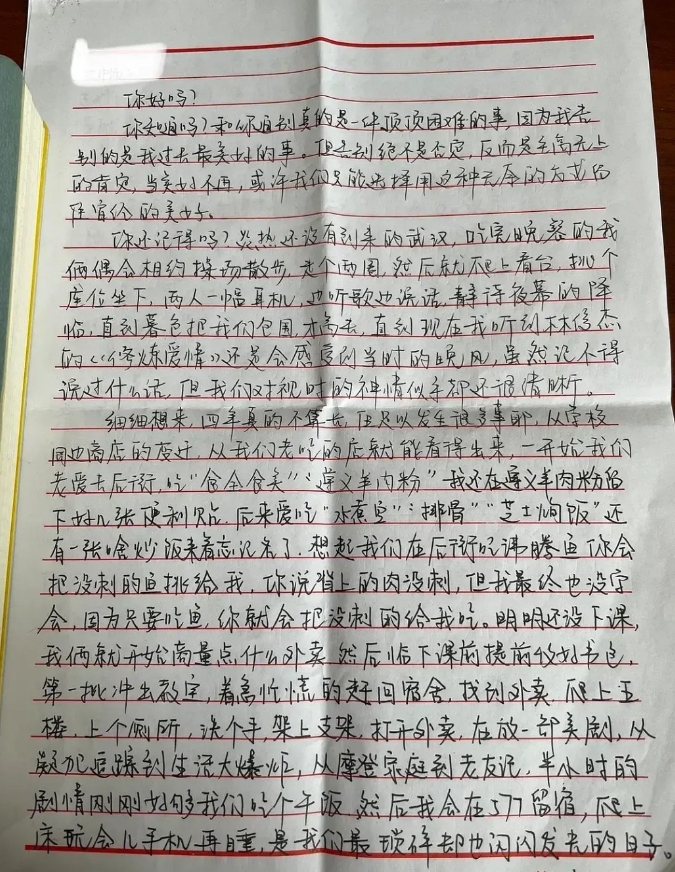 你好吗?
你知道吗?和你告别真的是一件顶顶困难的事,因为我告
别的是我过去最美好的事。但告别绝不是否定,反而是至高无上
的肯定,当美好不再,或许我们只能选择用这种无奈的方式
的美好。
你还记得吗?炎热还没有到来的武汉,吃完晚餐的我
俩偶会相约操场散步,走个两圈,然后就爬上看台,挑个
座位坐下,两人一幅耳机,边听歌边说话,静待夜幕的降
临,直到暮色把我们包围才离去,直到现在我听到林俊杰
的《修炼爱情》还是会感受到当时的晚风,虽然记不得
说过什么话,但我们对视时的神情似乎都还很清晰。
细细想来,四年真的不算长,但足以发生很多事耶,从学校
周边商店的变迁,从我们老吃的店就能看得出来,一开始我们
老爱去后街吃“食全食美”“遵义羊肉粉”我还在遵义羊肉粉留
下好几张便利贴,后来爱吃“水煮鱼”“排骨”“芝士焗饭”还
有一张啥炒饭来着忘记名了,想起我们在后街吃沸腾鱼你会
把没刺的鱼挑给我,你说背上的肉没刺,但我最终也没学
会,因为只要吃鱼,你就会把没刺的给我吃。明明还没下课,
我俩就开始商量点什么外卖,然后临下课前提前收好书包,
第一批冲出教室,着急忙慌的赶回宿舍,找到外卖,爬上五
楼,上个厕所,洗个手,架上支架,打开外卖,在放一部美剧,从
疑犯追踪到生活大爆炸,从摩登家庭到老友记,半小时的
剧情刚刚好够我们吃个午饭,然后我会在577留宿,爬上
床玩会儿手机再睡,是我们最琐碎却也闪闪发光的日子。